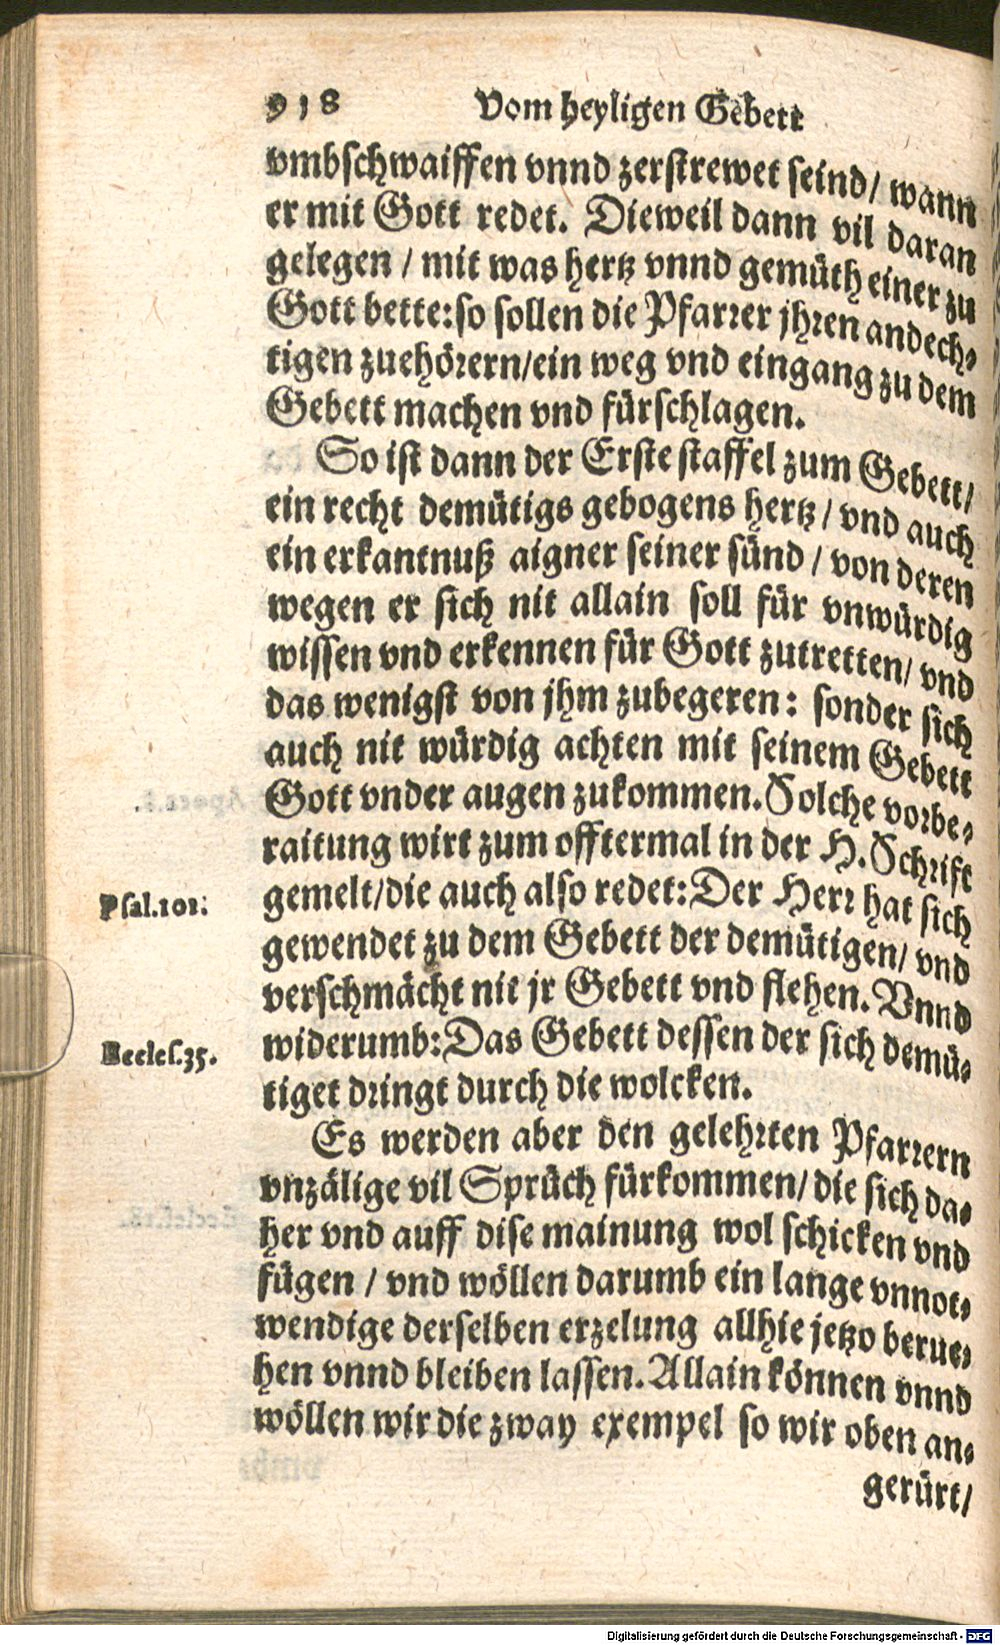 918 Vom heyligen Gebett
vmbschwaiffen vnnd zerstrewet seind/ wann
er mit Gott redet. Dieweil dann vil daran
gelegen / mit was hertz vnnd gemüth einer zu
Gott bette: so sollen die Pfarrer jhren andech-
tigen zuehörern/ein weg vnd eingang zu dem
Gebett machen vnd fürschlagen.
So ist dann der Erste staffel zum Gebett/
ein recht demütigs gebogens hertz / vnd auch
ein erkantnuß aigner seiner sünd / von deren
wegen er sich nit allain soll für vnwürdig
wissen vnd erkennen für Gott zutretten/ vnd
das wenigst von jhm zubegeren: sonder sich
auch nit würdig achten mit seinem Gebett
Gott vnder augen zukommen. Solche vorbe-
raitung wirt zum offtermal in der H. Schrift
Psal.101. gemelt/die auch also redet: Der Herr hat sich
gewendet zu dem Gebett der demütigen/ vnd
verschmächt nit jr Gebett vnd flehen. Vnnd
Eccles.35. widerumb: Das Gebett dessen der sich demü-
tiget dringt durch die wolcken.
Es werden aber den gelehrten Pfarrern
vnzälige vil Sprüch fürkommen/ die sich da-
her vnd auff dise mainung wol schicken vnd
fügen / vnd wöllen darumb ein lange vnnot-
wendige derselben erzelung allhie jetzo berue-
hen vnnd bleiben lassen. Allain können vnnd
wöllen wir die zway exempel so wir oben an-
gerürt/
Digitalisierung gefördert durch die Deutsche Forschungsgemeinschaft - DFG